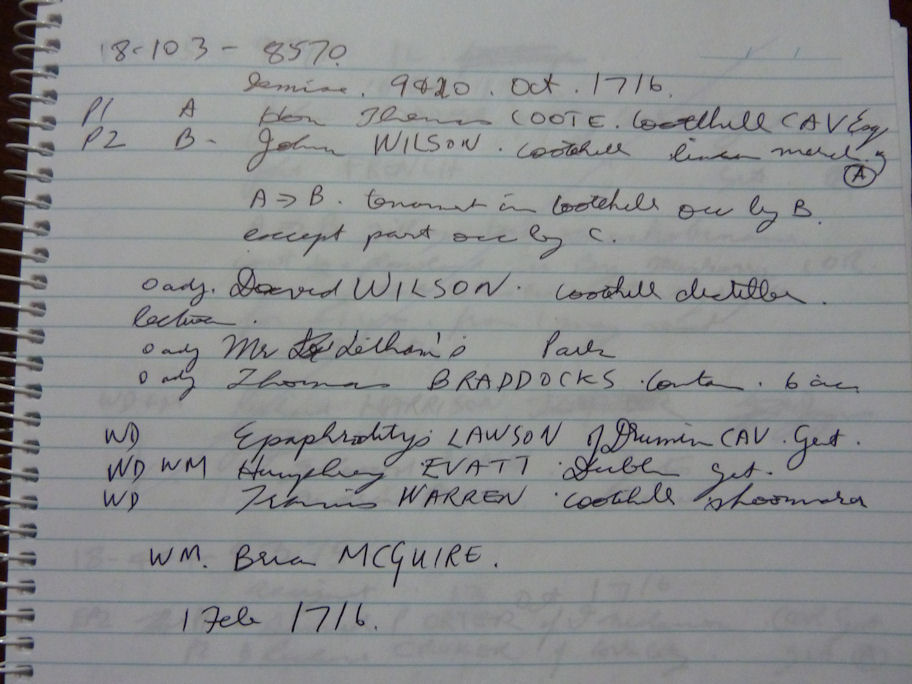 18-103 - 8570.
Demise. 9&20. Oct. 1716.
P1 A Hon Thomas COOTE. Cootehill CAV Esq
P2 B- John WILSON. cootehill linen merch.
A
A → B. tenament in Cootehill occ by B.
except part occ by C.
O adj. David WILSON. cootehill distiller.
O adj Mr Litham's Park
O adj Thomas BRADDOCKS. 6 ac
WD Epaphroditys LAWSON of Drumin CAV. Gent.
WD WM Humphrey EVATT. Dublin get.
WD Francis WARREN. cootehill
WM. Brian MCGUIRE.
1 Feb 1716.